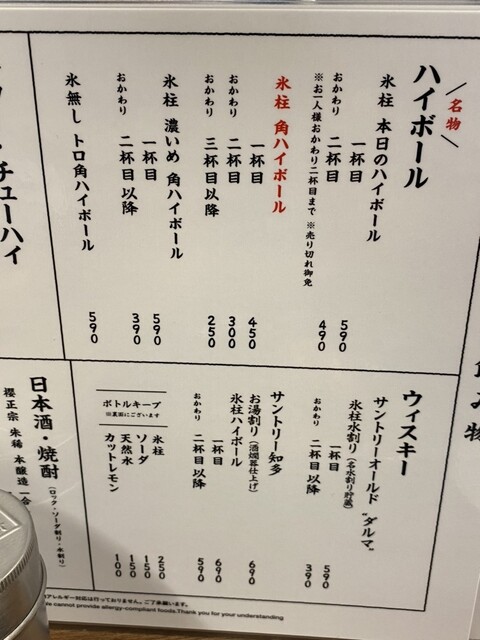 名物
ハイボール
氷柱 本日のハイボール
一杯目 590
おかわり 二杯目 490
※お一人様おかわり二杯目まで ※売り切れ御免
氷柱 角ハイボール
一杯目 450
おかわり 二杯目 300
おかわり 三杯目以降 250
氷柱 濃いめ 角ハイボール
一杯目 590
おかわり 二杯目以降 390
氷無し トロ角ハイボール 590
チューハイ
み物
ウィスキー
サントリーオールド "ダルマ"
氷柱水割り(名水割り貯蔵)
一杯目 590
おかわり 二杯目 390
サントリー知多
お湯割り(酒燗器仕上げ) 690
氷柱ハイボール
一杯目 690
おかわり 二杯目以降 590
ボトルキープ
※裏面にございます
氷柱 250
ソーダ 150
天然水 150
カットレモン 100
日本酒・焼酎
(ロック・ソーダ割り・水割り)
櫻正宗 朱稀 本醸造 一合
アレルギー対応は行っておりません。ご了承願います。
cannot provide allergy-compliant foods.Thank you for your understanding